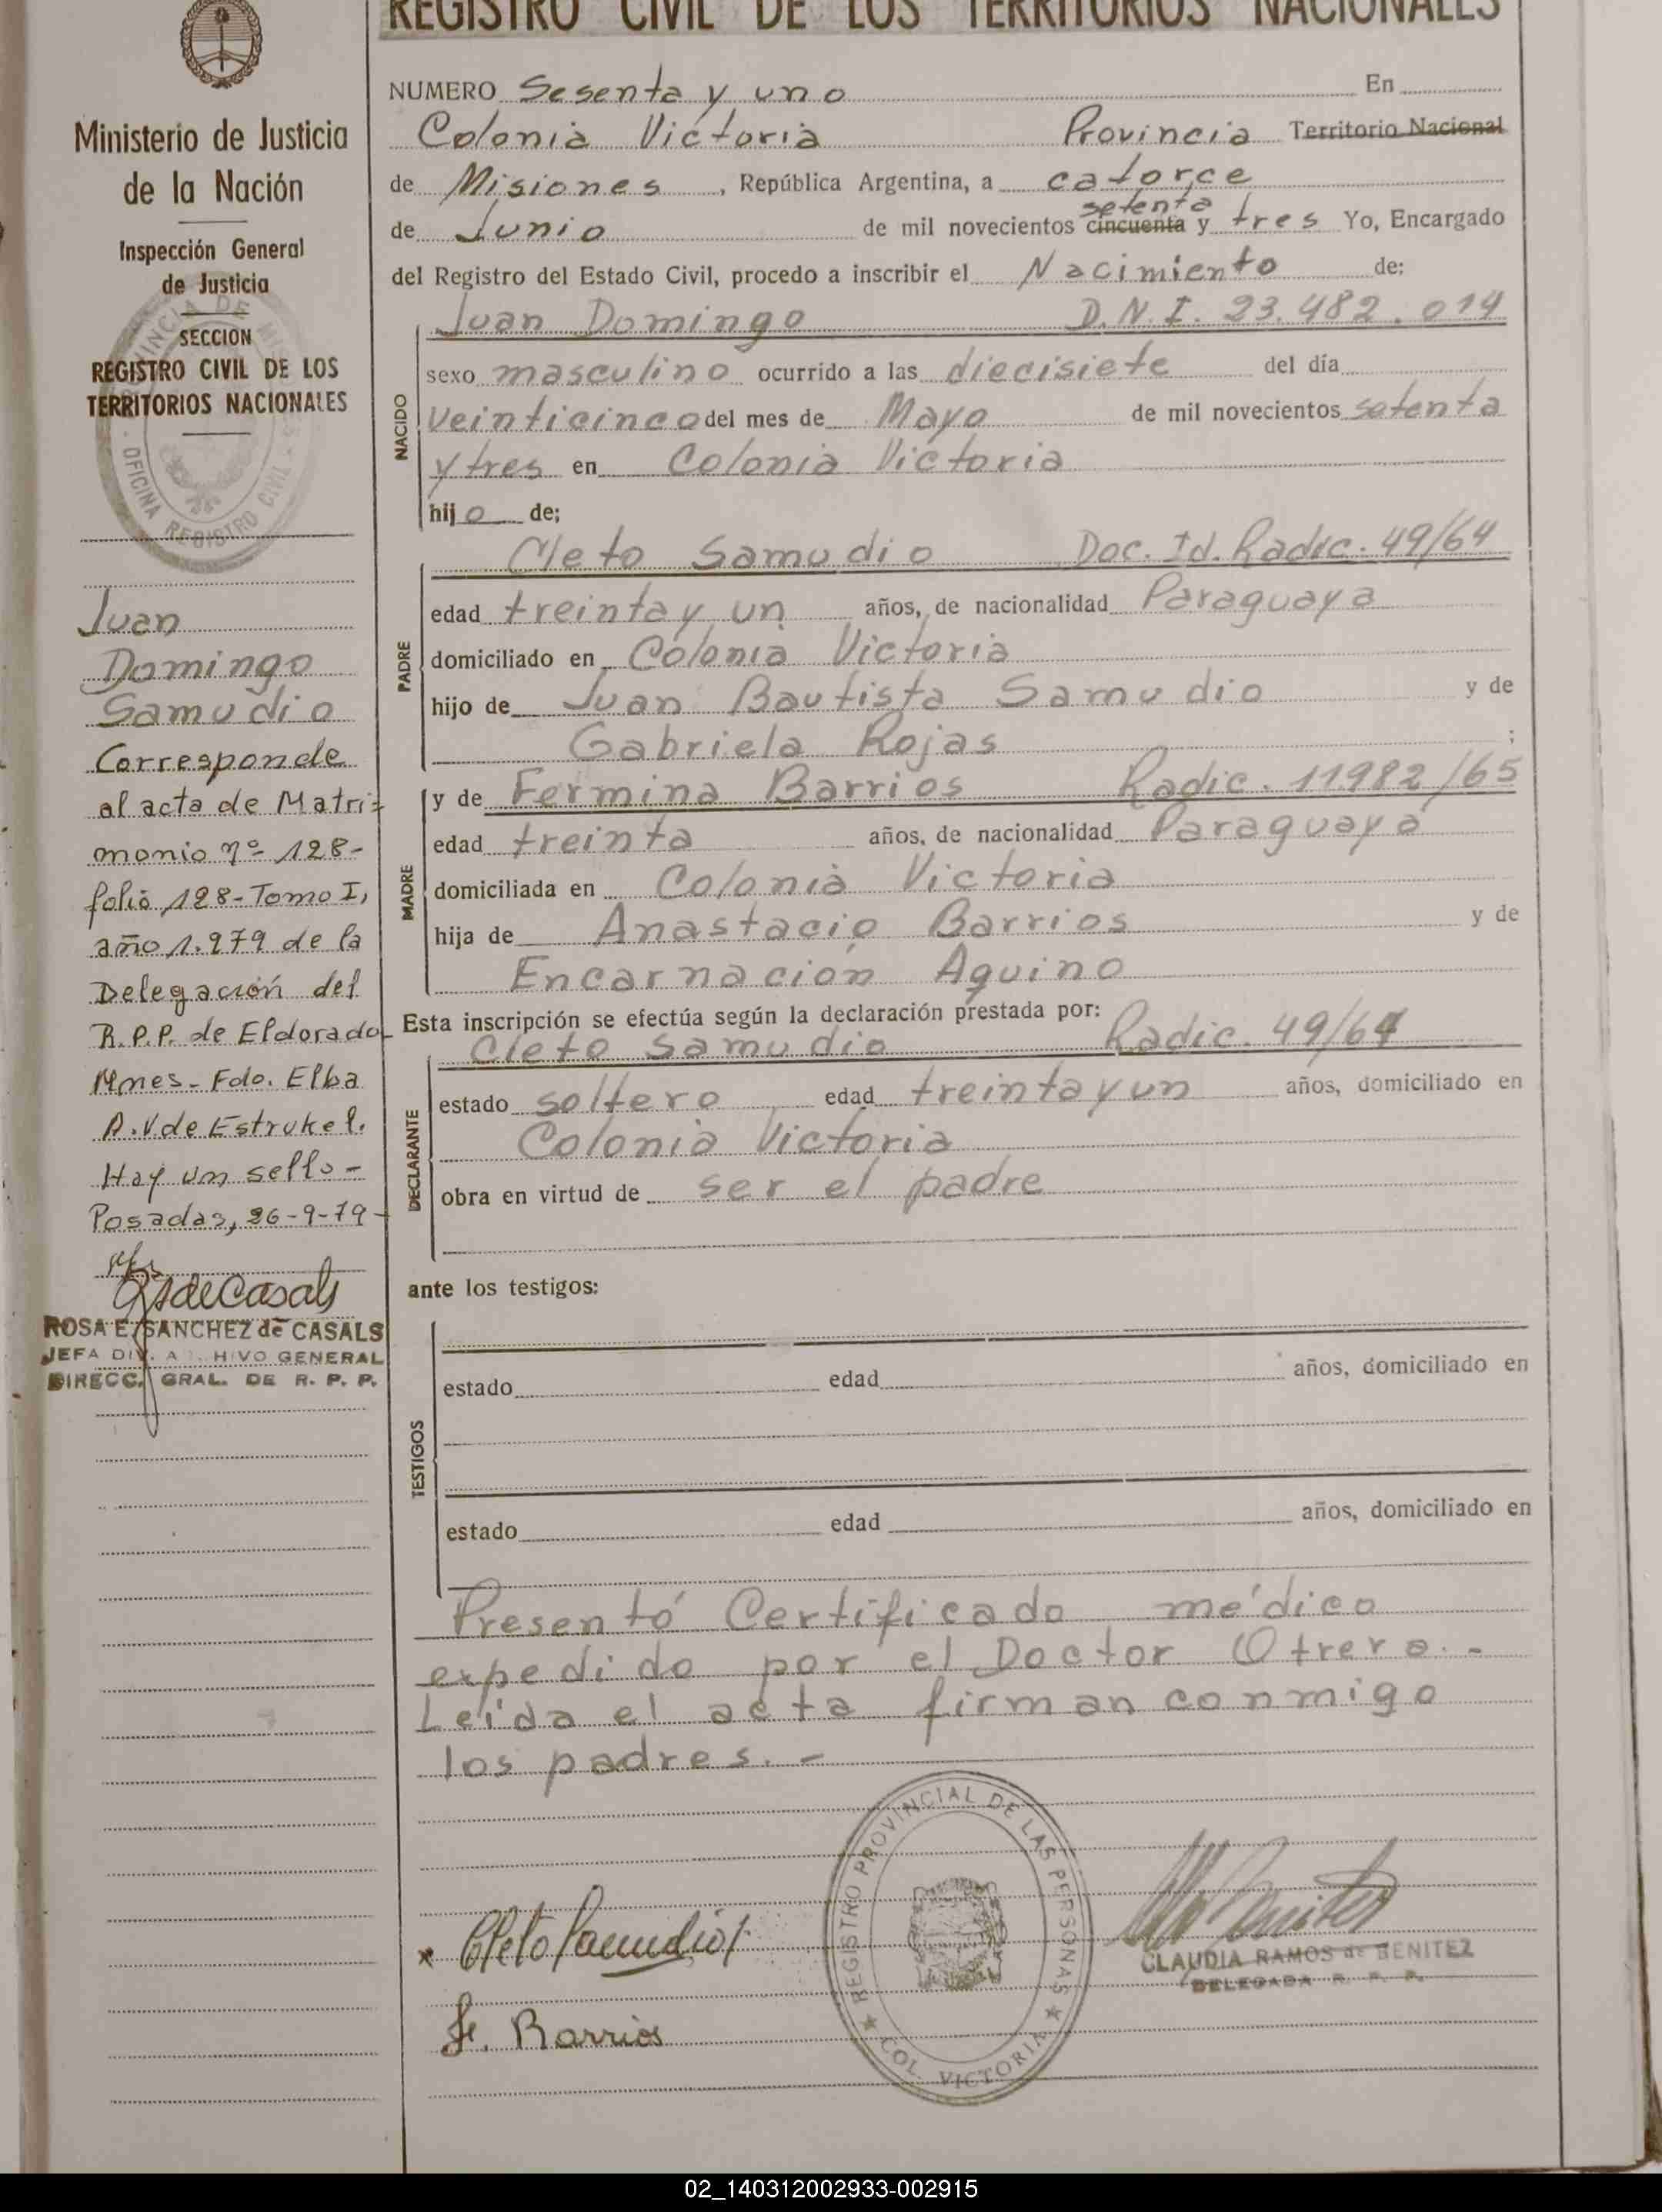 REGISTRO CIVIL DE LOS TERRITORIOS NACIONALES
Ministerio de Justicia
de la Nación
Inspección General
de Justicia
SECCION
REGISTRO CIVIL DE LOS
TERRITORIOS NACIONALES
OFICINA REGISTRO CIVIL
Juan
Domingo
Samudio
Corresponde
al acta de Matri-
monio nº 128-
folio 128-Tomo I,
año 1.979 de la
Delegación del
R.P.P. de Eldorado
Mnes- Fdo. Elba
A.V. de Estrukel.
Hay un sello-
Posadas, 26-9-79-
ROSA E. SANCHEZ de CASALS
JEFA DIV. ARCHIVO GENERAL
DIRECC. GRAL. DE R. P. P.
NUMERO Sesenta y uno En
Colonia Victoria Provincia Territorio Nacional
de Misiones, República Argentina, a catorce
setenta
de Junio de mil novecientos cincuenta y tres Yo, Encargado
del Registro del Estado Civil, procedo a inscribir el Nacimiento de:
Juan Domingo D.N.I. 23.482.014
NACIDO
sexo masculino ocurrido a las diecisiete del día
veinticinco del mes de Mayo de mil novecientos setenta
y tres en Colonia Victoria
hijo de;
Cleto Samudio Doc. Id. Radic. 49/64
PADRE
edad treinta y un años, de nacionalidad Paraguaya
domiciliado en Colonia Victoria
hijo de Juan Bautista Samudio y de
Gabriela Rojas ;
MADRE
y de Fermina Barrios Radic. 11982/65
edad treinta años, de nacionalidad Paraguaya
domiciliada en Colonia Victoria
hija de Anastacio Barrios y de
Encarnación Aquino
Esta inscripción se efectúa según la declaración prestada por:
Cleto Samudio Radic. 49/64
DECLARANTE
estado soltero edad treinta y un años, domiciliado en
Colonia Victoria
obra en virtud de ser el padre
ante los testigos:
TESTIGOS
estado edad años, domiciliado en
estado edad años, domiciliado en
Presentó Certificado médico
expedido por el Doctor Otrero.-
Leída el acta firman conmigo
los padres.-
Cleto Samudio
F. Barrios
REGISTRO PROVINCIAL DE LAS PERSONAS
COL. VICTORIA
CLAUDIA RAMOS de BENITEZ
DELEGADA R. P. P.
02_140312002933-002915